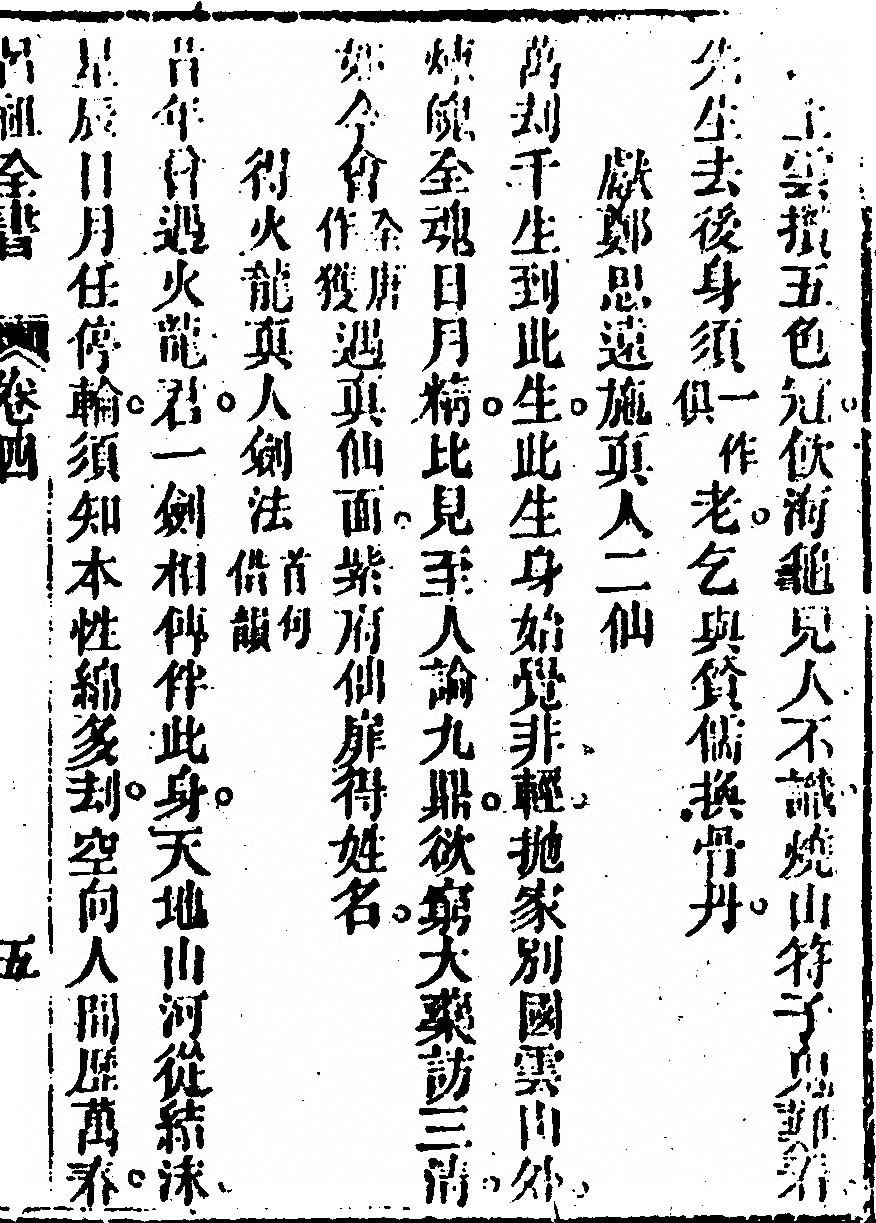 上雲攢五色冠飲海龜兒人不識燒山符子鬼難看
先生去後身須一作俱老乞與貧儒換骨丹
獻鄭思遠施真人二仙
萬刦千生到此生此生身始覺非輕抛家別國雲山外
煉魄全魂日月精比見至人論九鼎欲窮大藥訪三清
如今曾全唐作獲遇真仙面紫府仙扉得姓名
得火龍真人劍法首句借韻
昔年曾遇火龍君一劍相傳伴此身天地山河從結沫
星辰日月任停輪須知本性綿多刦空向人間歷萬春
呂祖全書 卷四 五